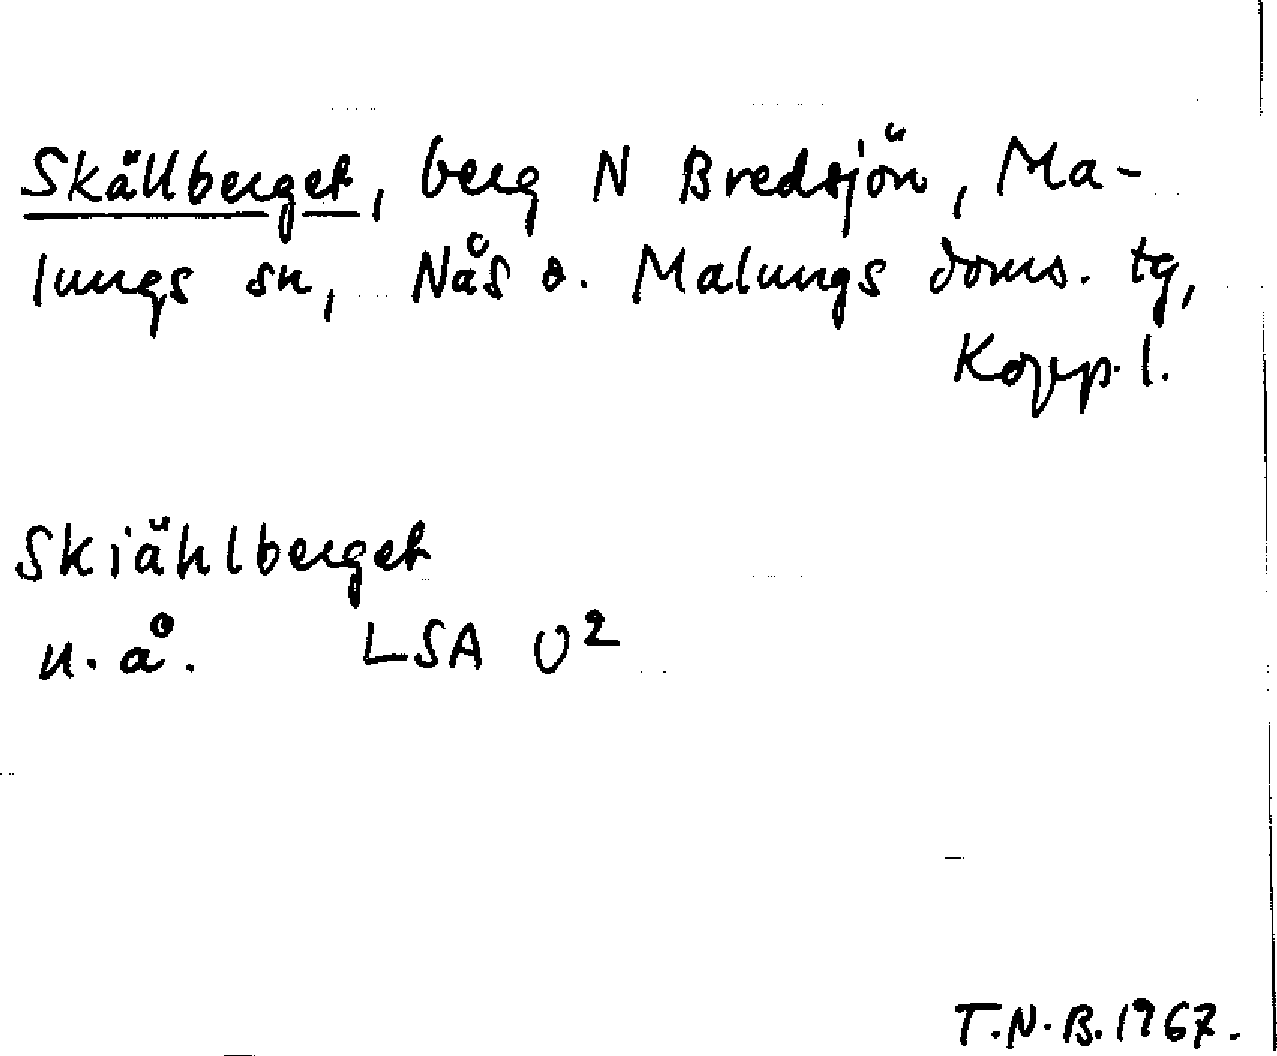 Skällberget, berg N Bredsjön, Ma-
lungs sn, Nås o. Malungs doms. tg,
Kopp. l.
Skiählberget
u. å. LSA U²
T.N.B. 1967.